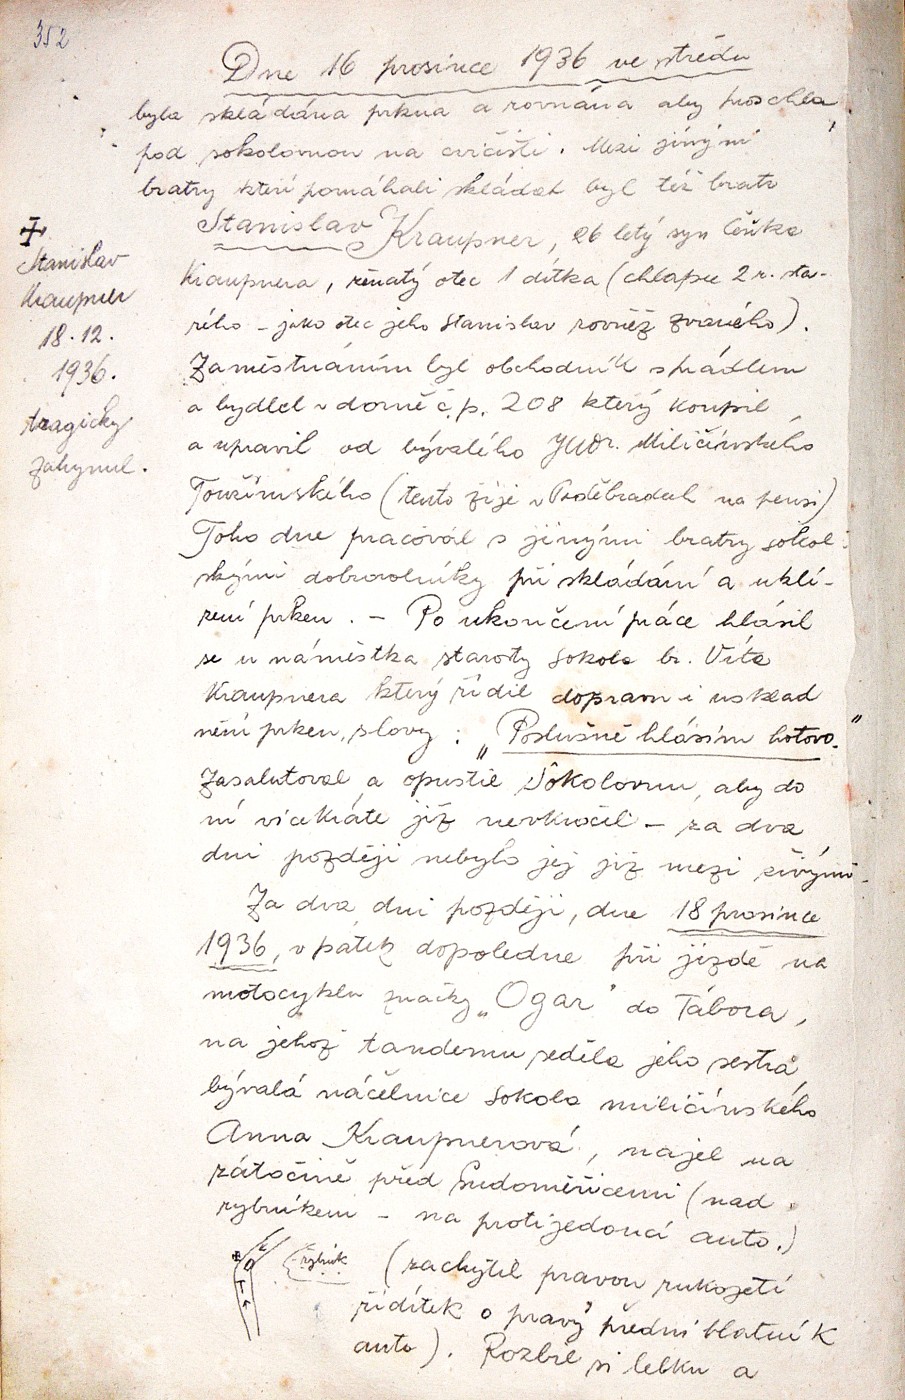 352
Dne 16 prosince 1936 ve středu
byla skládána prkna a rovnána aby proschla,
pod sokolovnou na cvičišti. Mezi jinými
bratry kteří pomáhali skládat byl též bratr
Stanislav Kraupner, 26 letý syn Čeňka
Kraupnera, ženatý otec 1 dítka (chlapce 2 r. sta-
rého – jako otec jeho Stanislav rovněž zvaného).
Zaměstnáním byl obchodník s prádlem
a bydlel v domě č.p. 208 který koupil
a upravil od bývalého JUDr. Miličínského
Toužimského (tento žije v Poděbradech na pensi)
Toho dne pracoval s jinými bratry sokol-
skými dobrovolníky při skládání a uklí-
zení prken. – Po ukončení práce hlásil
se u náměstka starosty Sokola br. Víta
Kraupnera který řídil dopravu i usklad
nění prken, slovy: „Poslušně hlásím hotovo."
Zasalutoval a opustil Sokolovnu, aby do
ní vícekráte již nevkročil – za dva
dni později nebylo jej již mezi živými.
Za dva dni později, dne 18 prosince
1936, v pátek dopoledne při jízdě na
motocyklu značky „Ogar" do Tábora,
na jehož tandemu seděla jeho sestra
bývalá náčelnice Sokola miličínského
Anna Kraupnerová, najel na
zátočině před Sudoměřicemi (nad
rybníkem – na protijedoucí auto.)
(zachytil pravou rukojetí
řidítek o pravý přední blatník
auto). Rozbil si lebku a
✝
Stanislav
Kraupner
18.12.
1936.
tragicky
zahynul.
rybník